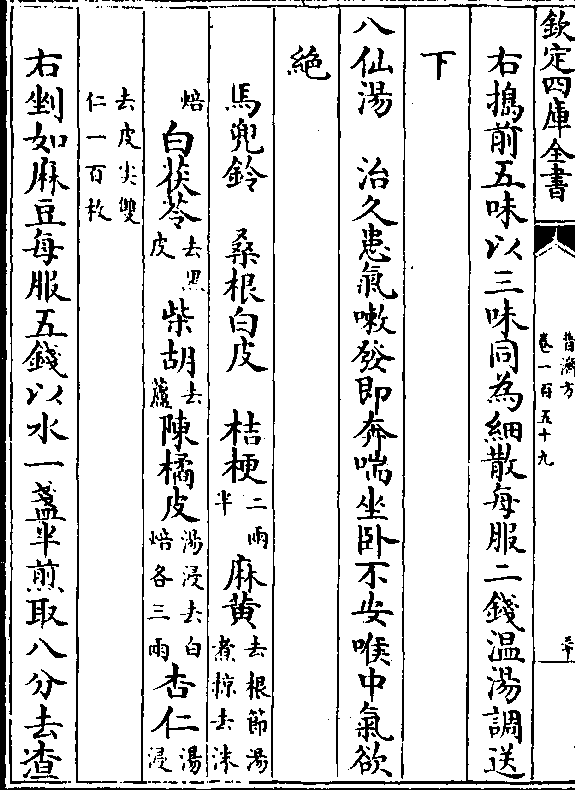 欽定四庫全書
普濟方
卷一百五十九
右搗前五味以三味同為細散每服二錢温湯調送
下
八仙湯　治久患氣嗽發即奔喘坐卧不安喉中氣欲
絶
馬兜鈴　桑根白皮　桔梗二兩半　麻黄去根節湯煮掠去沫
焙　白茯苓去黒皮　柴胡去蘆　陳橘皮湯浸去白焙各三兩　杏仁湯浸
去皮尖雙仁一百枚
右剉如麻豆每服五錢以水一盞半煎取八分去渣